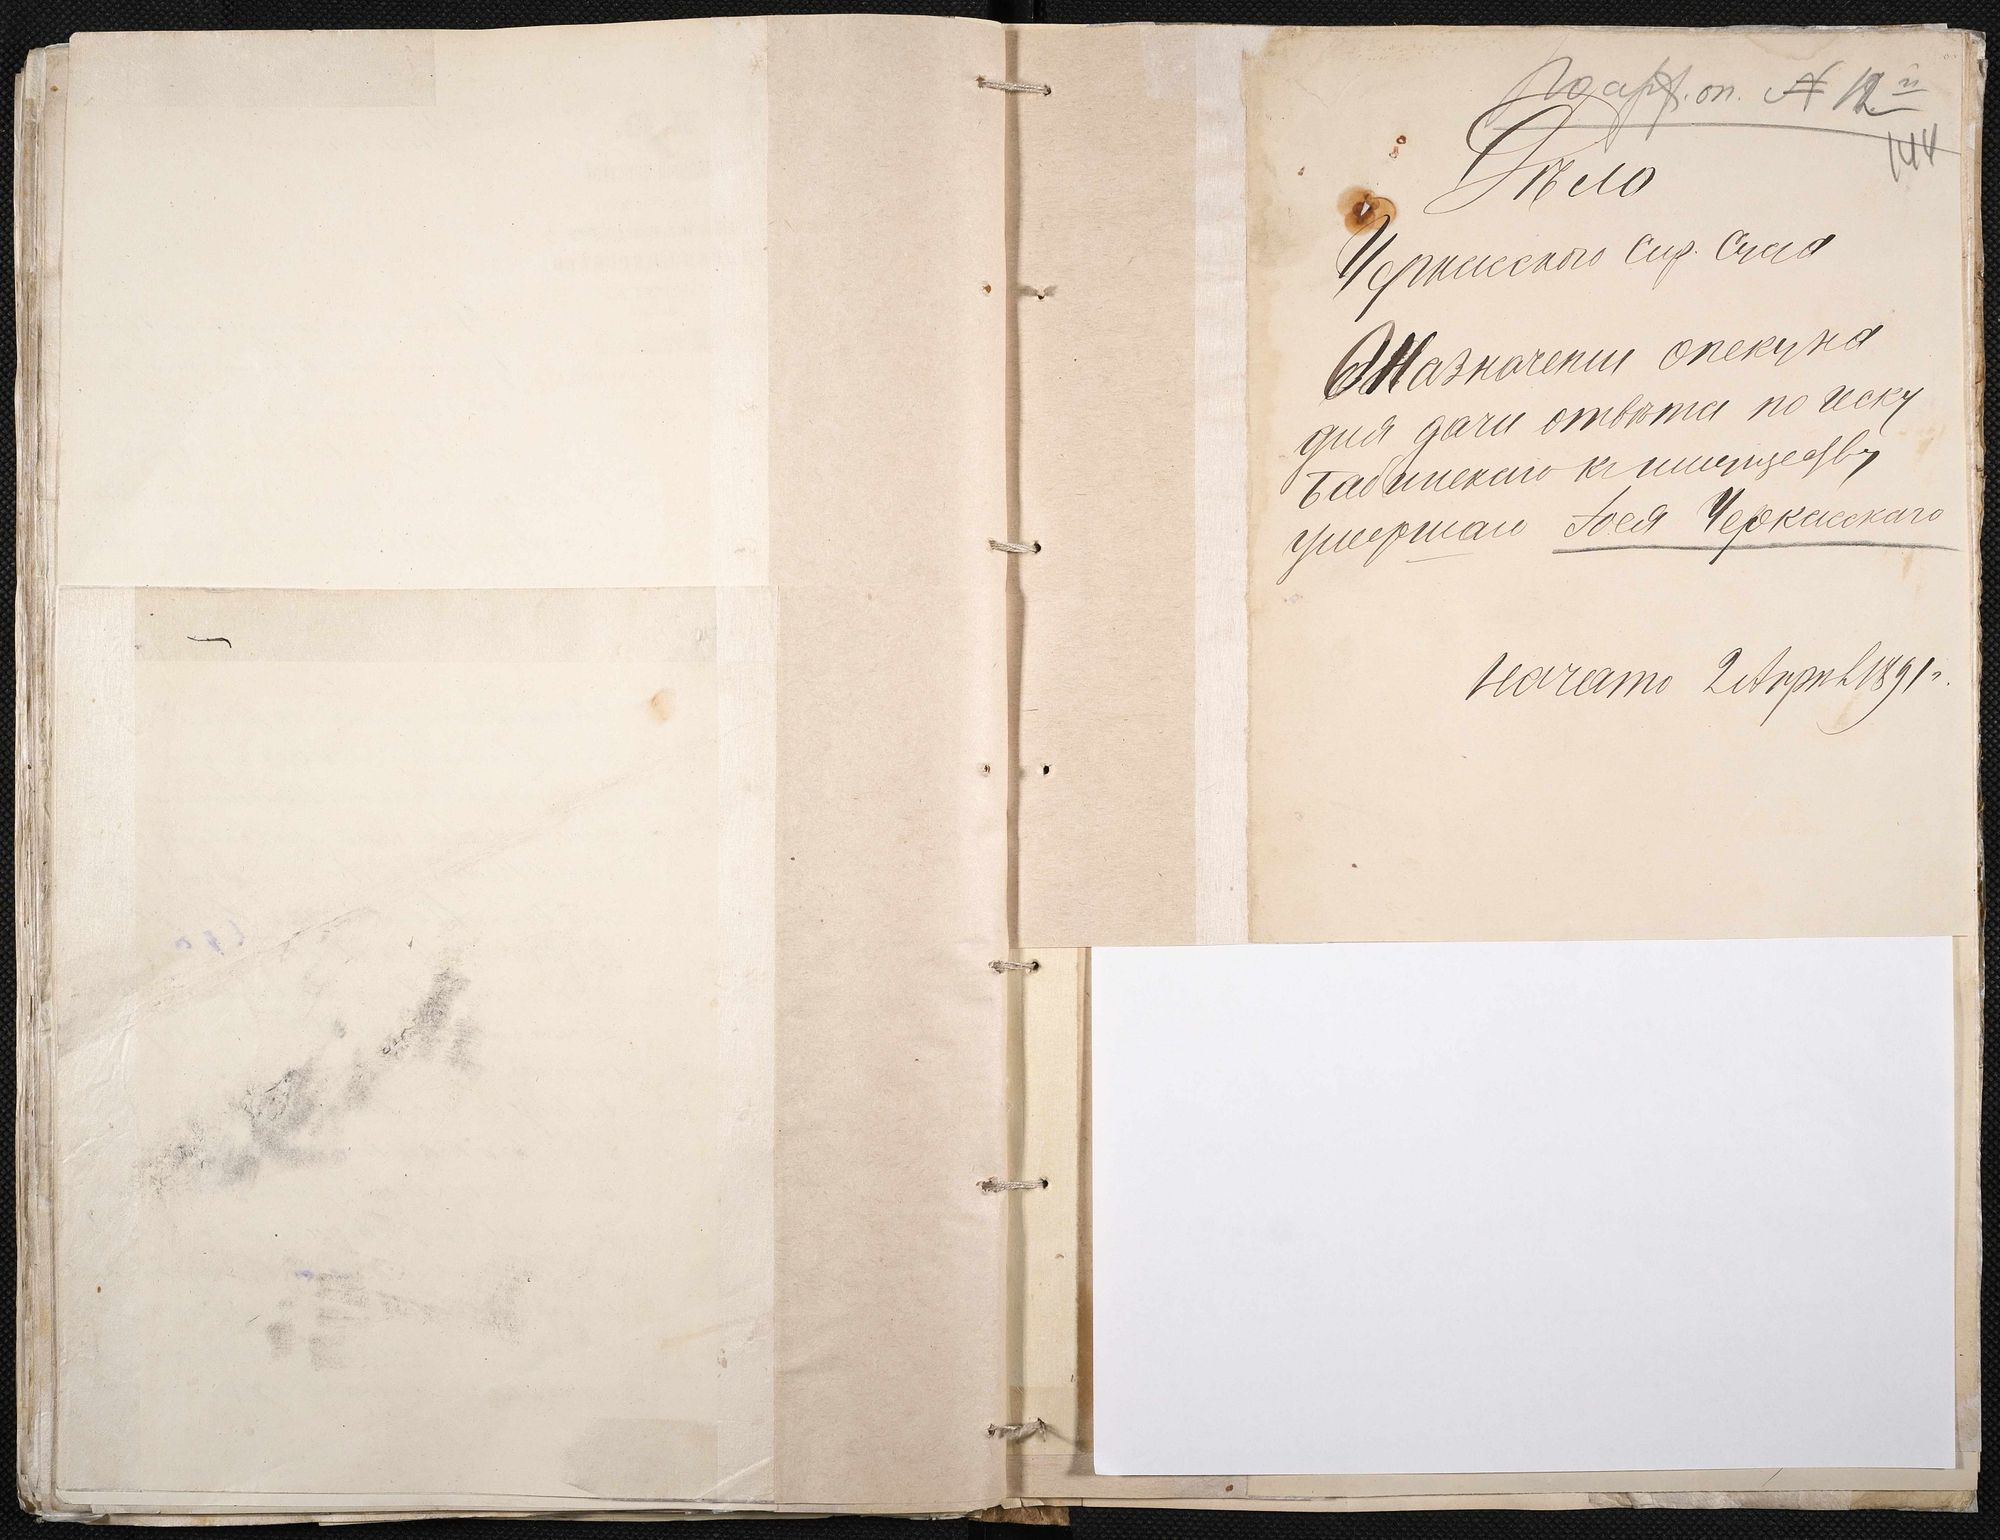 по арх. оп. № 12й
144
Дѣло
Черкасскаго Сир. Суда
О Назначеніи опекуна
для дачи отвѣта по иску
Бабинскаго къ имуществу
умершаго Іося Черкасскаго
Начато 2 Апрѣл 1891 г.